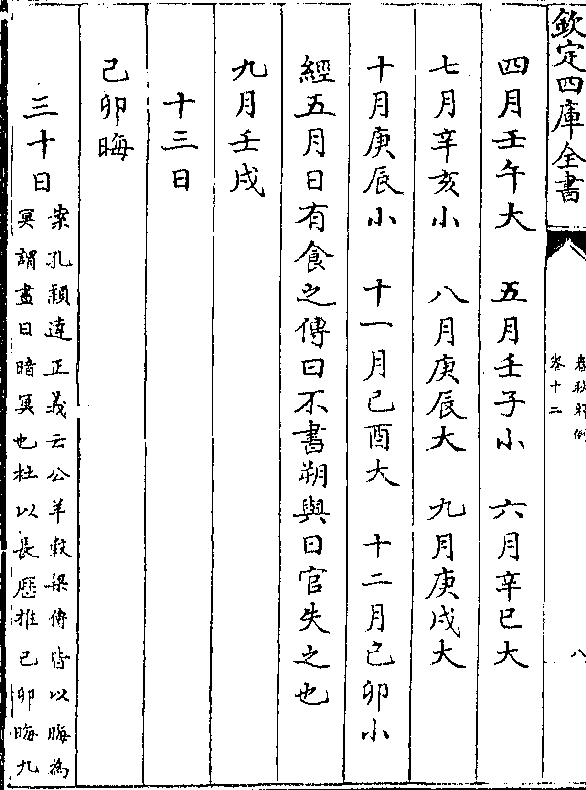 欽定四庫全書
春秋釋例
卷十二
八
四月壬午大　五月壬子小　六月辛巳大
七月辛亥小　八月庚辰大　九月庚戌大
十月庚辰小　十一月己酉大　十二月己卯小
經五月日有食之傳曰不書朔與日官失之也
九月壬戌
十三日
己卯晦
三十日
案孔穎達正義云公羊穀梁傳皆以晦為
冥謂晝日暗冥也杜以長歷推己卯晦九